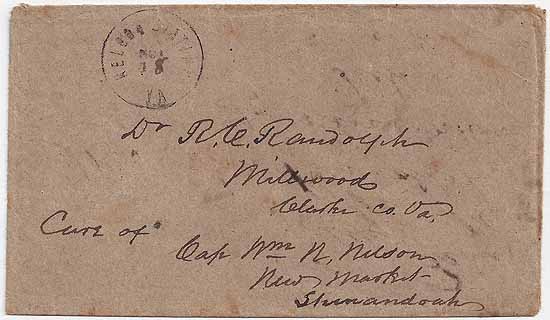 VA
Dr R. C. Randolph
Millwood
Clarke Co. Va,
Care of Cap Wm N. Nelson
New Market
Shenandoah